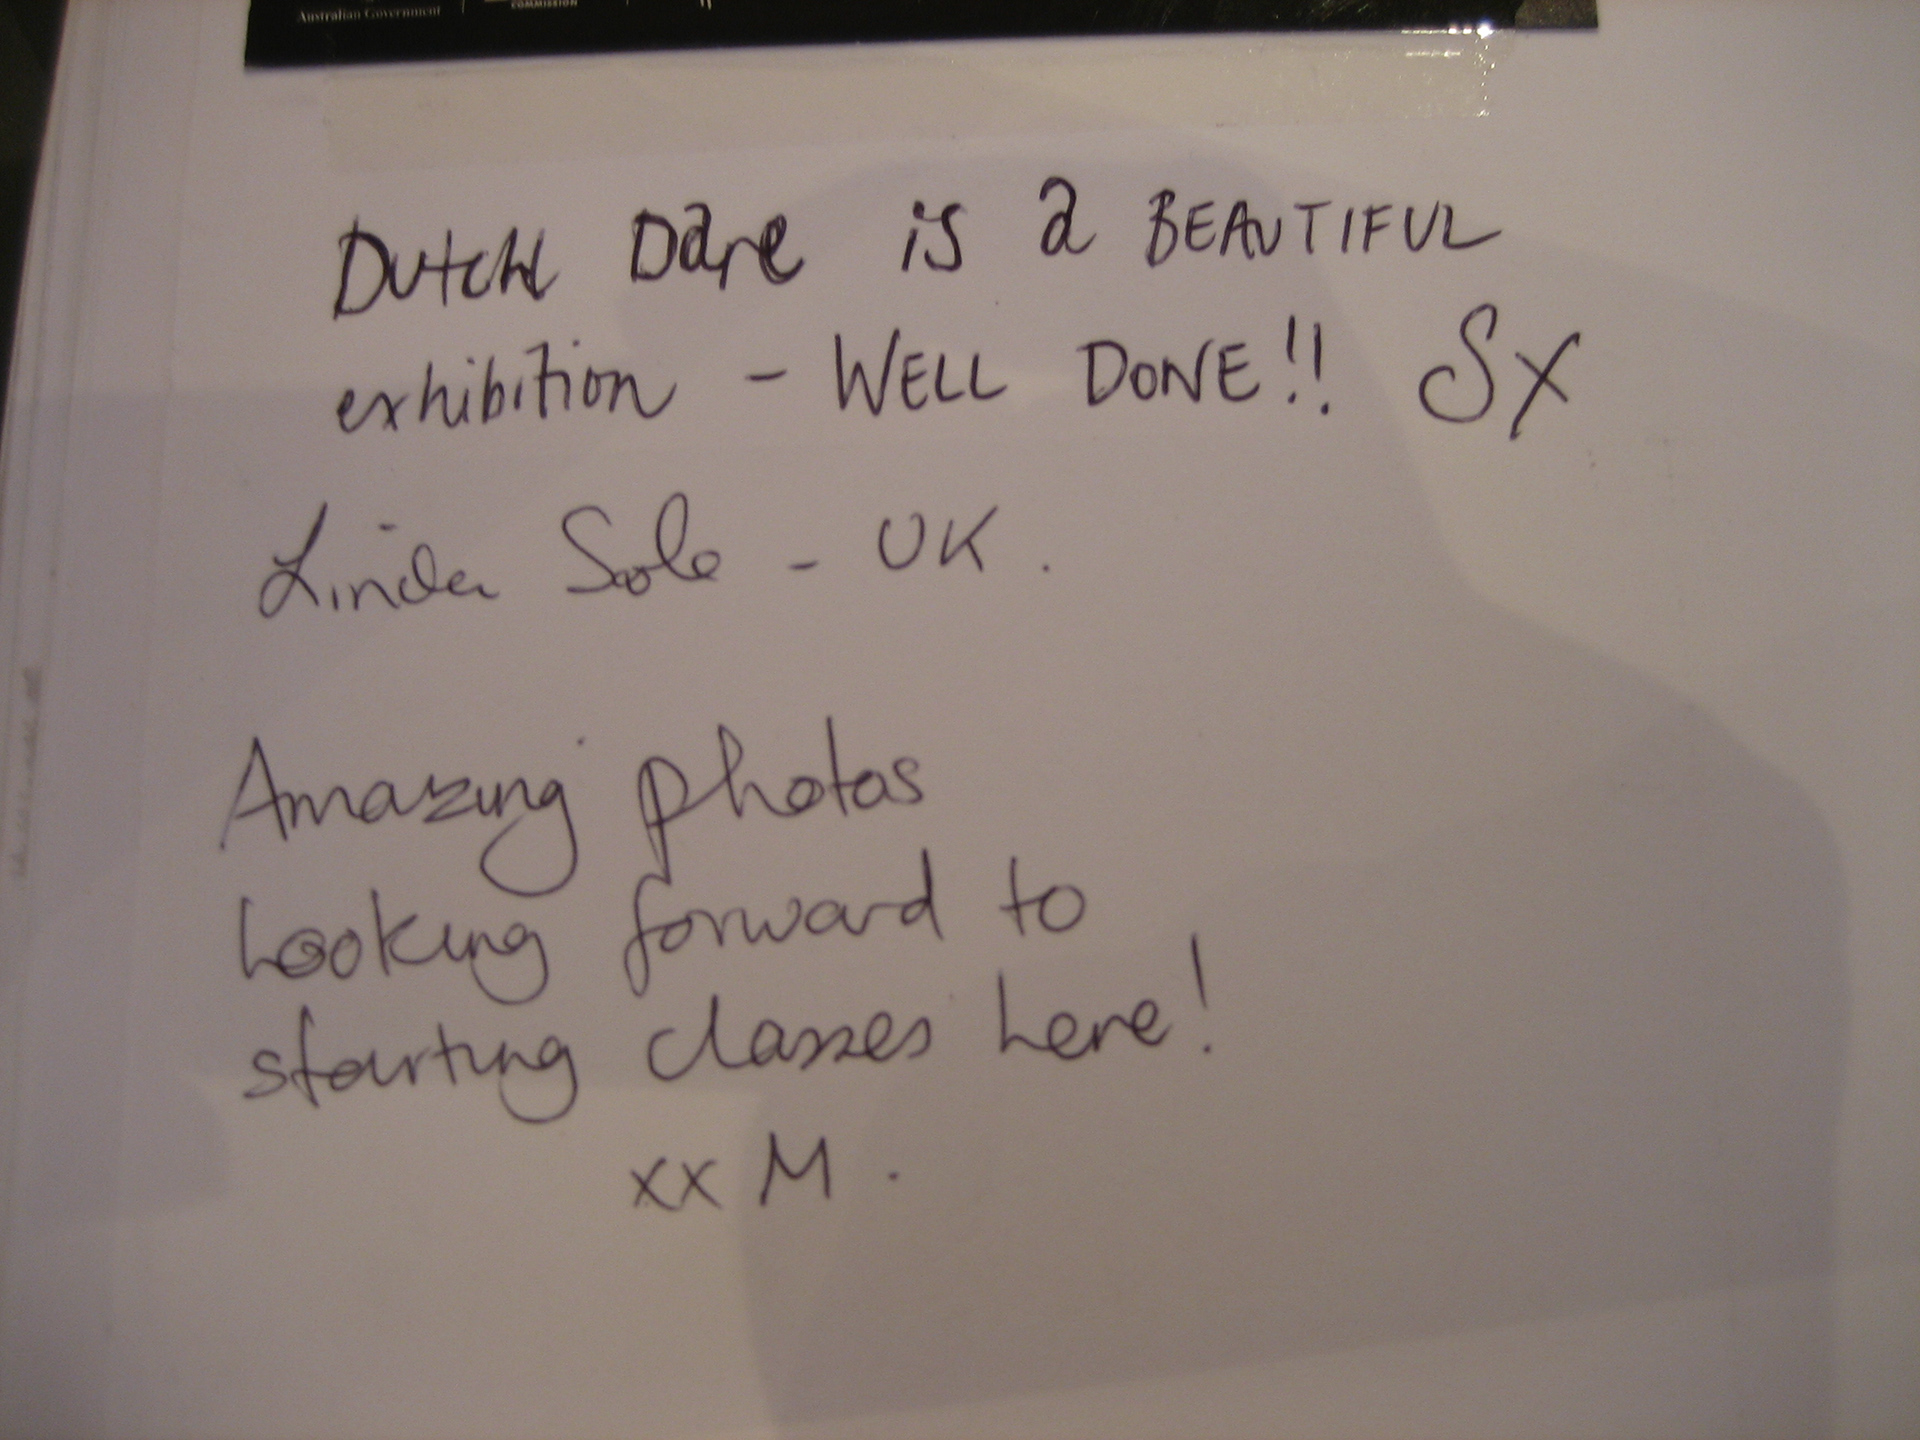 Australian Government
COMMISSION
Dutch Dare is a BEAUTIFUL
exhibition - WELL DONE!! SX
Linda Sole - UK.
Amazing photos
Looking forward to
starting classes here!
xx M.